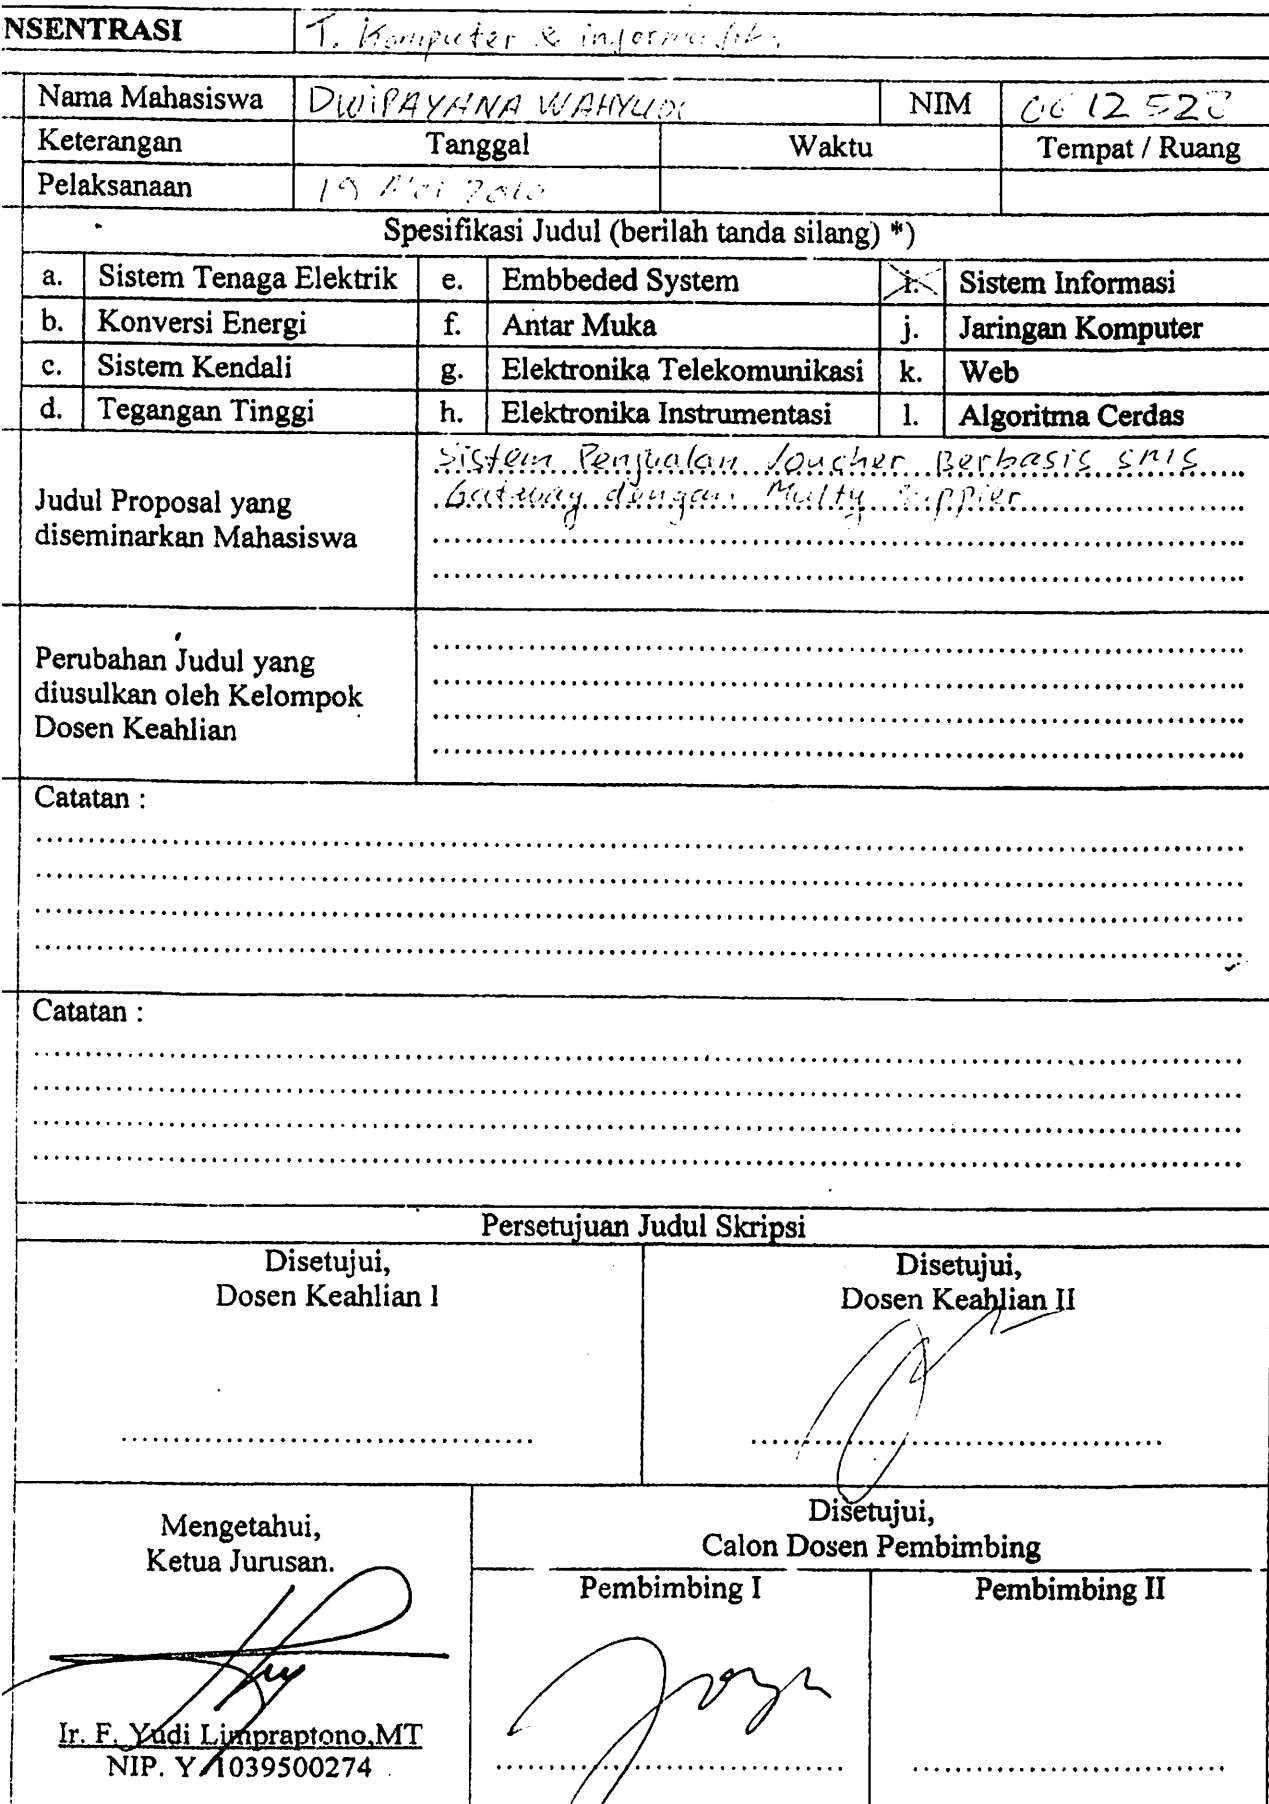 NSENTRASI T. Komputer & informatika
Nama Mahasiswa DWIPAYANA WAHYUDI NIM 0612528
Keterangan Tanggal Waktu Tempat / Ruang
Pelaksanaan 19 Mei 2010
Spesifikasi Judul (berilah tanda silang) *)
a. Sistem Tenaga Elektrik e. Embbeded System i. Sistem Informasi
b. Konversi Energi f. Antar Muka j. Jaringan Komputer
c. Sistem Kendali g. Elektronika Telekomunikasi k. Web
d. Tegangan Tinggi h. Elektronika Instrumentasi l. Algoritma Cerdas
Judul Proposal yang
diseminarkan Mahasiswa
Sistem Penjualan Voucher Berbasis SMS
Gateway dengan Multy Suppier
Perubahan Judul yang
diusulkan oleh Kelompok
Dosen Keahlian
Catatan :
Catatan :
Persetujuan Judul Skripsi
Disetujui,
Dosen Keahlian I
Disetujui,
Dosen Keahlian II
Mengetahui,
Ketua Jurusan.
Ir. F. Yudi Limpraptono,MT
NIP. Y 1039500274
Disetujui,
Calon Dosen Pembimbing
Pembimbing I Pembimbing II